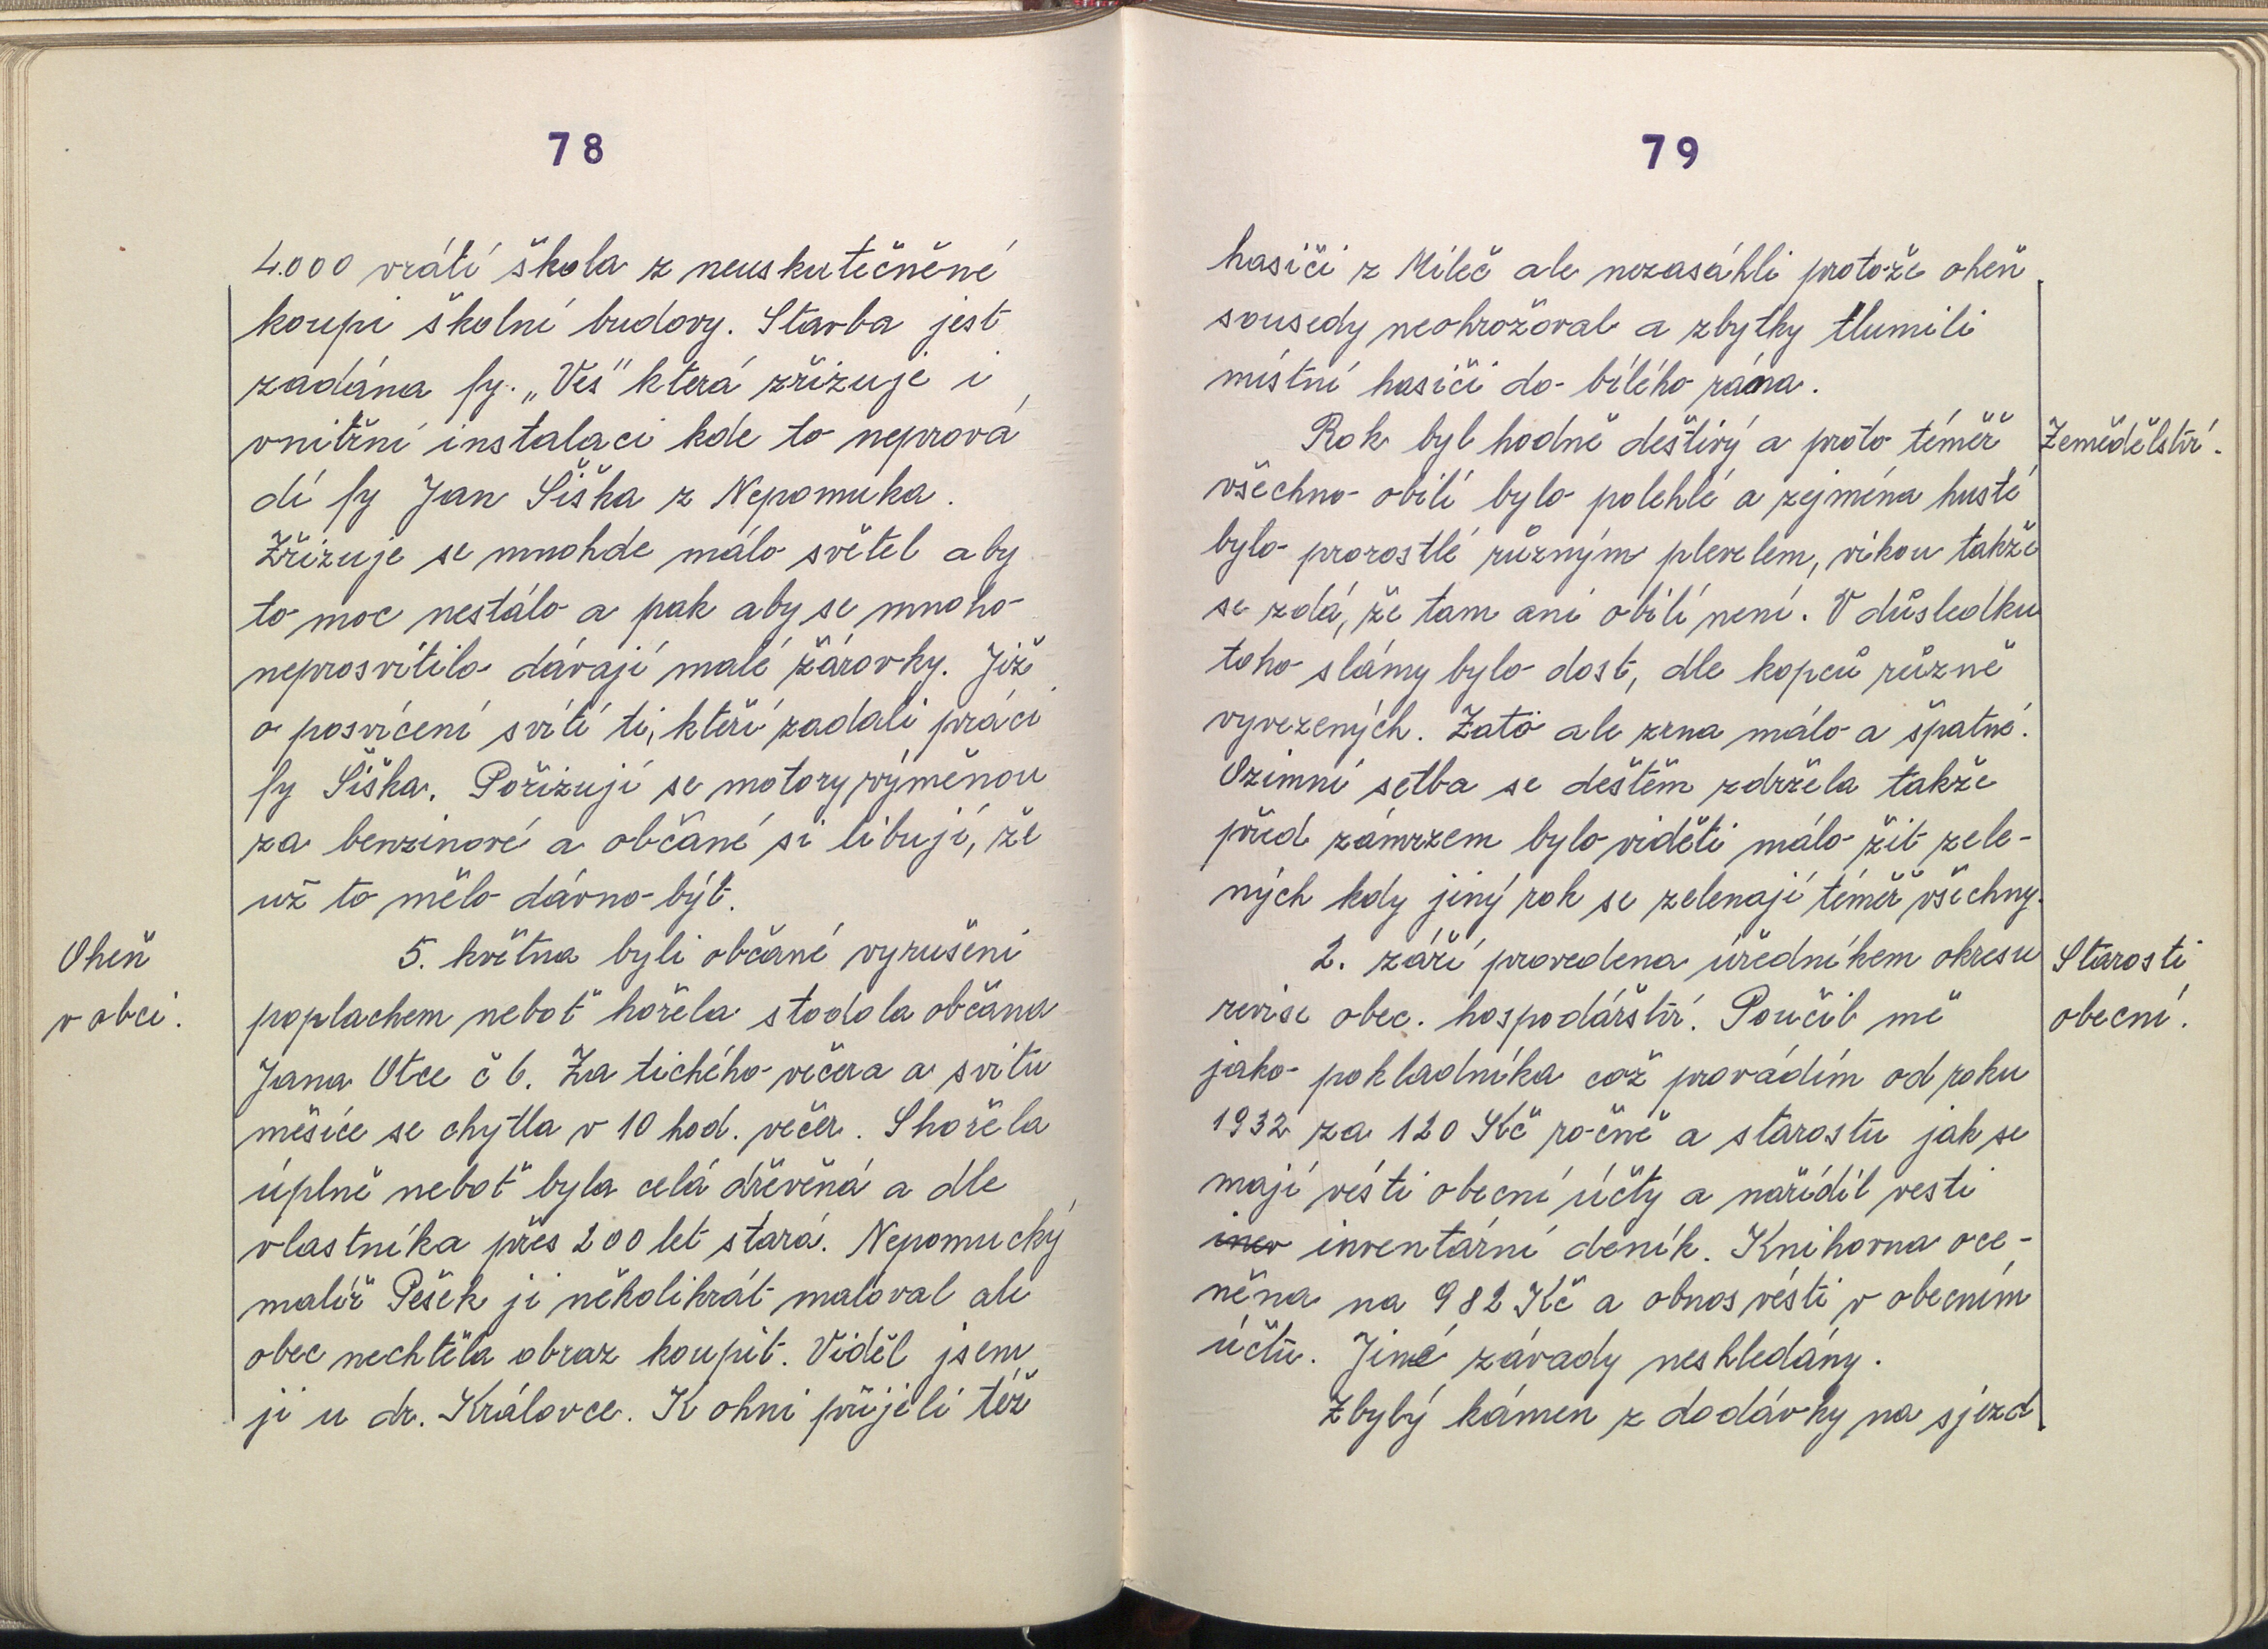 78
4.000 vrátí škola z neuskutečněné
koupi školní budovy. Stavba jest
zadána fy. „Ves" která zřizuje i
vnitřní instalaci kde to neprová
dí fy Jan Šiška z Nepomuka.
Zřizuje se mnohde málo světel aby
to moc nestálo a pak aby se mnoho
neprosvítilo dávají malé žárovky. Již
o posvícení svítí ti, kteří zadali práci
fy Šiška. Pořizují se motory výměnou
za benzinové a občané si libují, že
už to mělo dávno být.
Oheň
v obci.
5. května byli občané vyrušeni
poplachem neboť hořela stodola občana
Jana Otce č 6. Za tichého večera a svitu
měsíce se chytla v 10 hod. večer. Shořela
úplně neboť byla celá dřevěná a dle
vlastníka přes 200 let stará. Nepomucký
malíř Pešek ji několikrát maloval ale
obec nechtěla obraz koupit. Viděl jsem
ji u dr. Královce. K ohni přijeli též
79
hasiči z Mileč ale nezasáhli protože oheň
sousedy neohrožoval a zbytky tlumili
místní hasiči do bílého rána.
Zemědělství.
Rok byl hodně deštivý a proto téměř
všechno obilí bylo polehlé a zejména husté
bylo prorostlé různým plevelem, vikou takže
se zdá, že tam ani obilí není. V důsledku
toho slámy bylo dost, dle kopců různě
vyvezených. Zato ale zrna málo a špatné.
Ozimní setba se deštěm zdržela takže
před zámrzem bylo viděti málo žit zele-
ných kdy jiný rok se zelenají téměř všechny.
Starosti
obecní.
2. září provedena úředníkem okresu
revise obec. hospodářství. Poučil mě
jako pokladníka což provádím od roku
1932 za 120 Kč ročně a starostu jak se
mají vésti obecní účty a nařídil vesti
inev inventární deník. Knihovna oce-
něna na 982 Kč a obnos vésti v obecním
účtu. Jiné závady neshledány.
Zbylý kámen z dodávky na sjezd